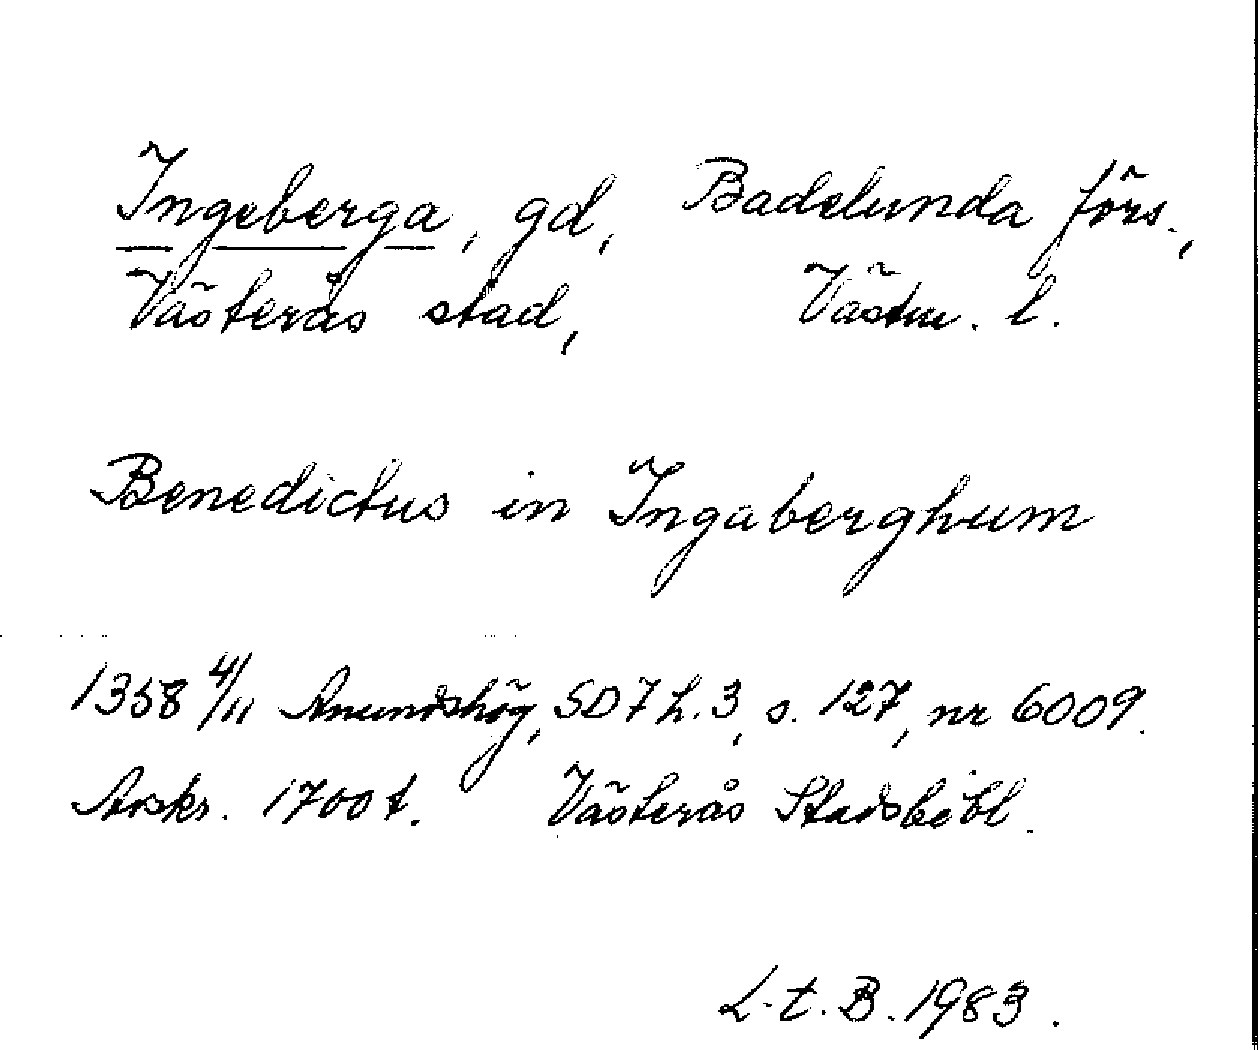 Ingeberga, gd, Badelunda förs.,
Västerås stad, Västm. l.
Benedictus in Ingaberghum
1358 4/11 Anundshög, SD 7 h. 3, s. 127, nr 6009.
Avskr. 1700 t. Västerås Stadsbibl.
L. t. B. 1983.